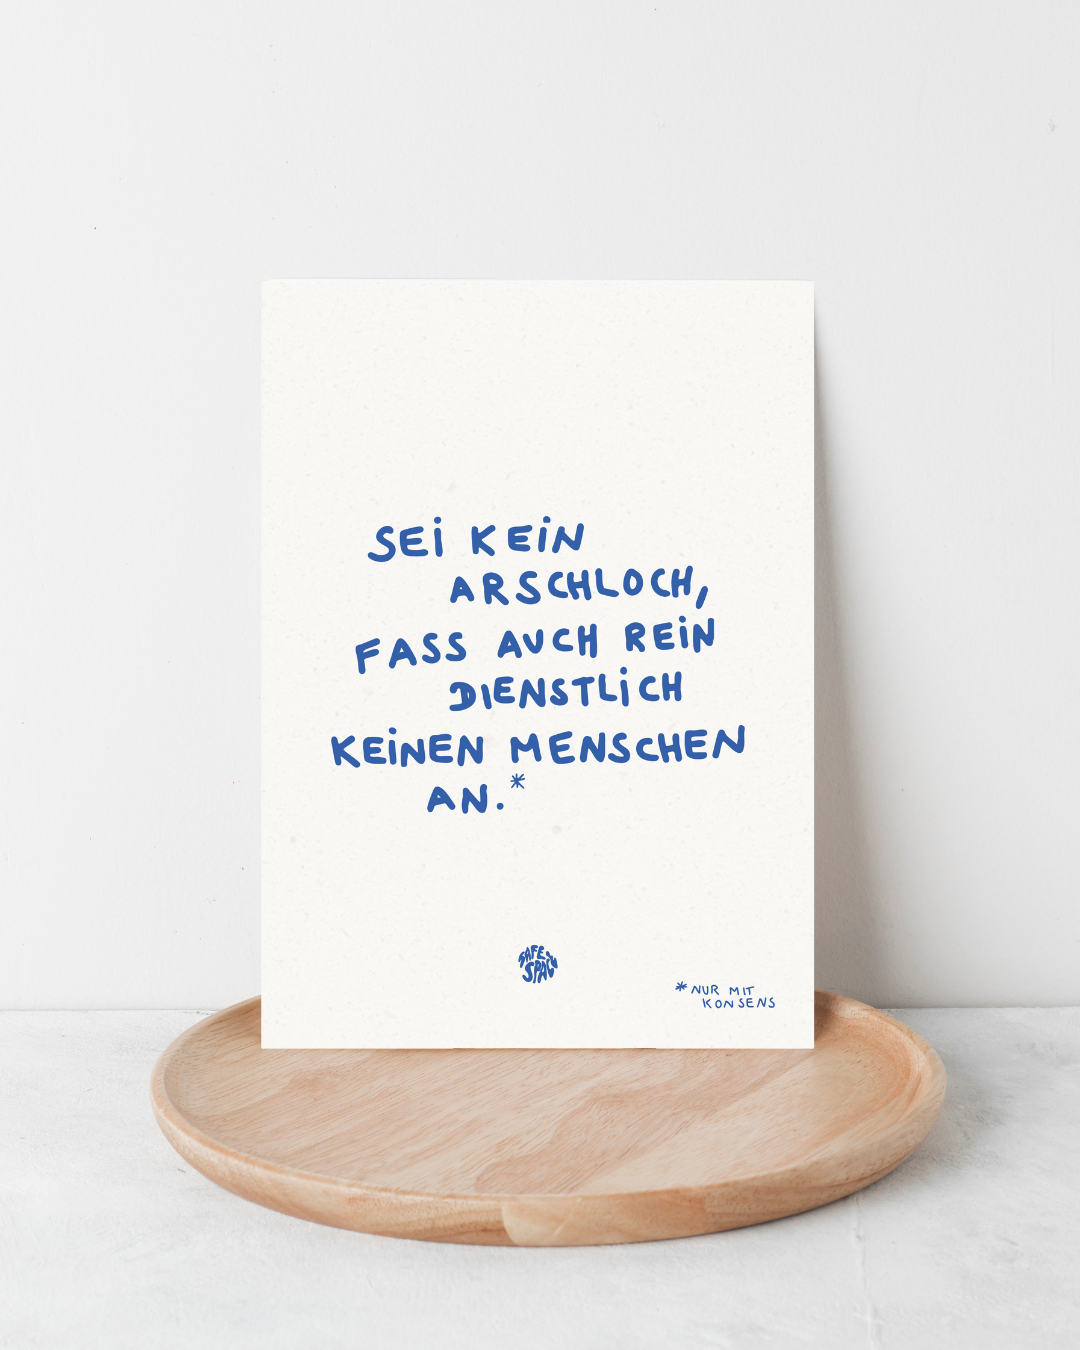 SEI KEIN
ARSCHLOCH,
FASS AUCH REIN
DIENSTLICH
KEINEN MENSCHEN
AN.*
SAFE
SPACE
*NUR MIT
KONSENS